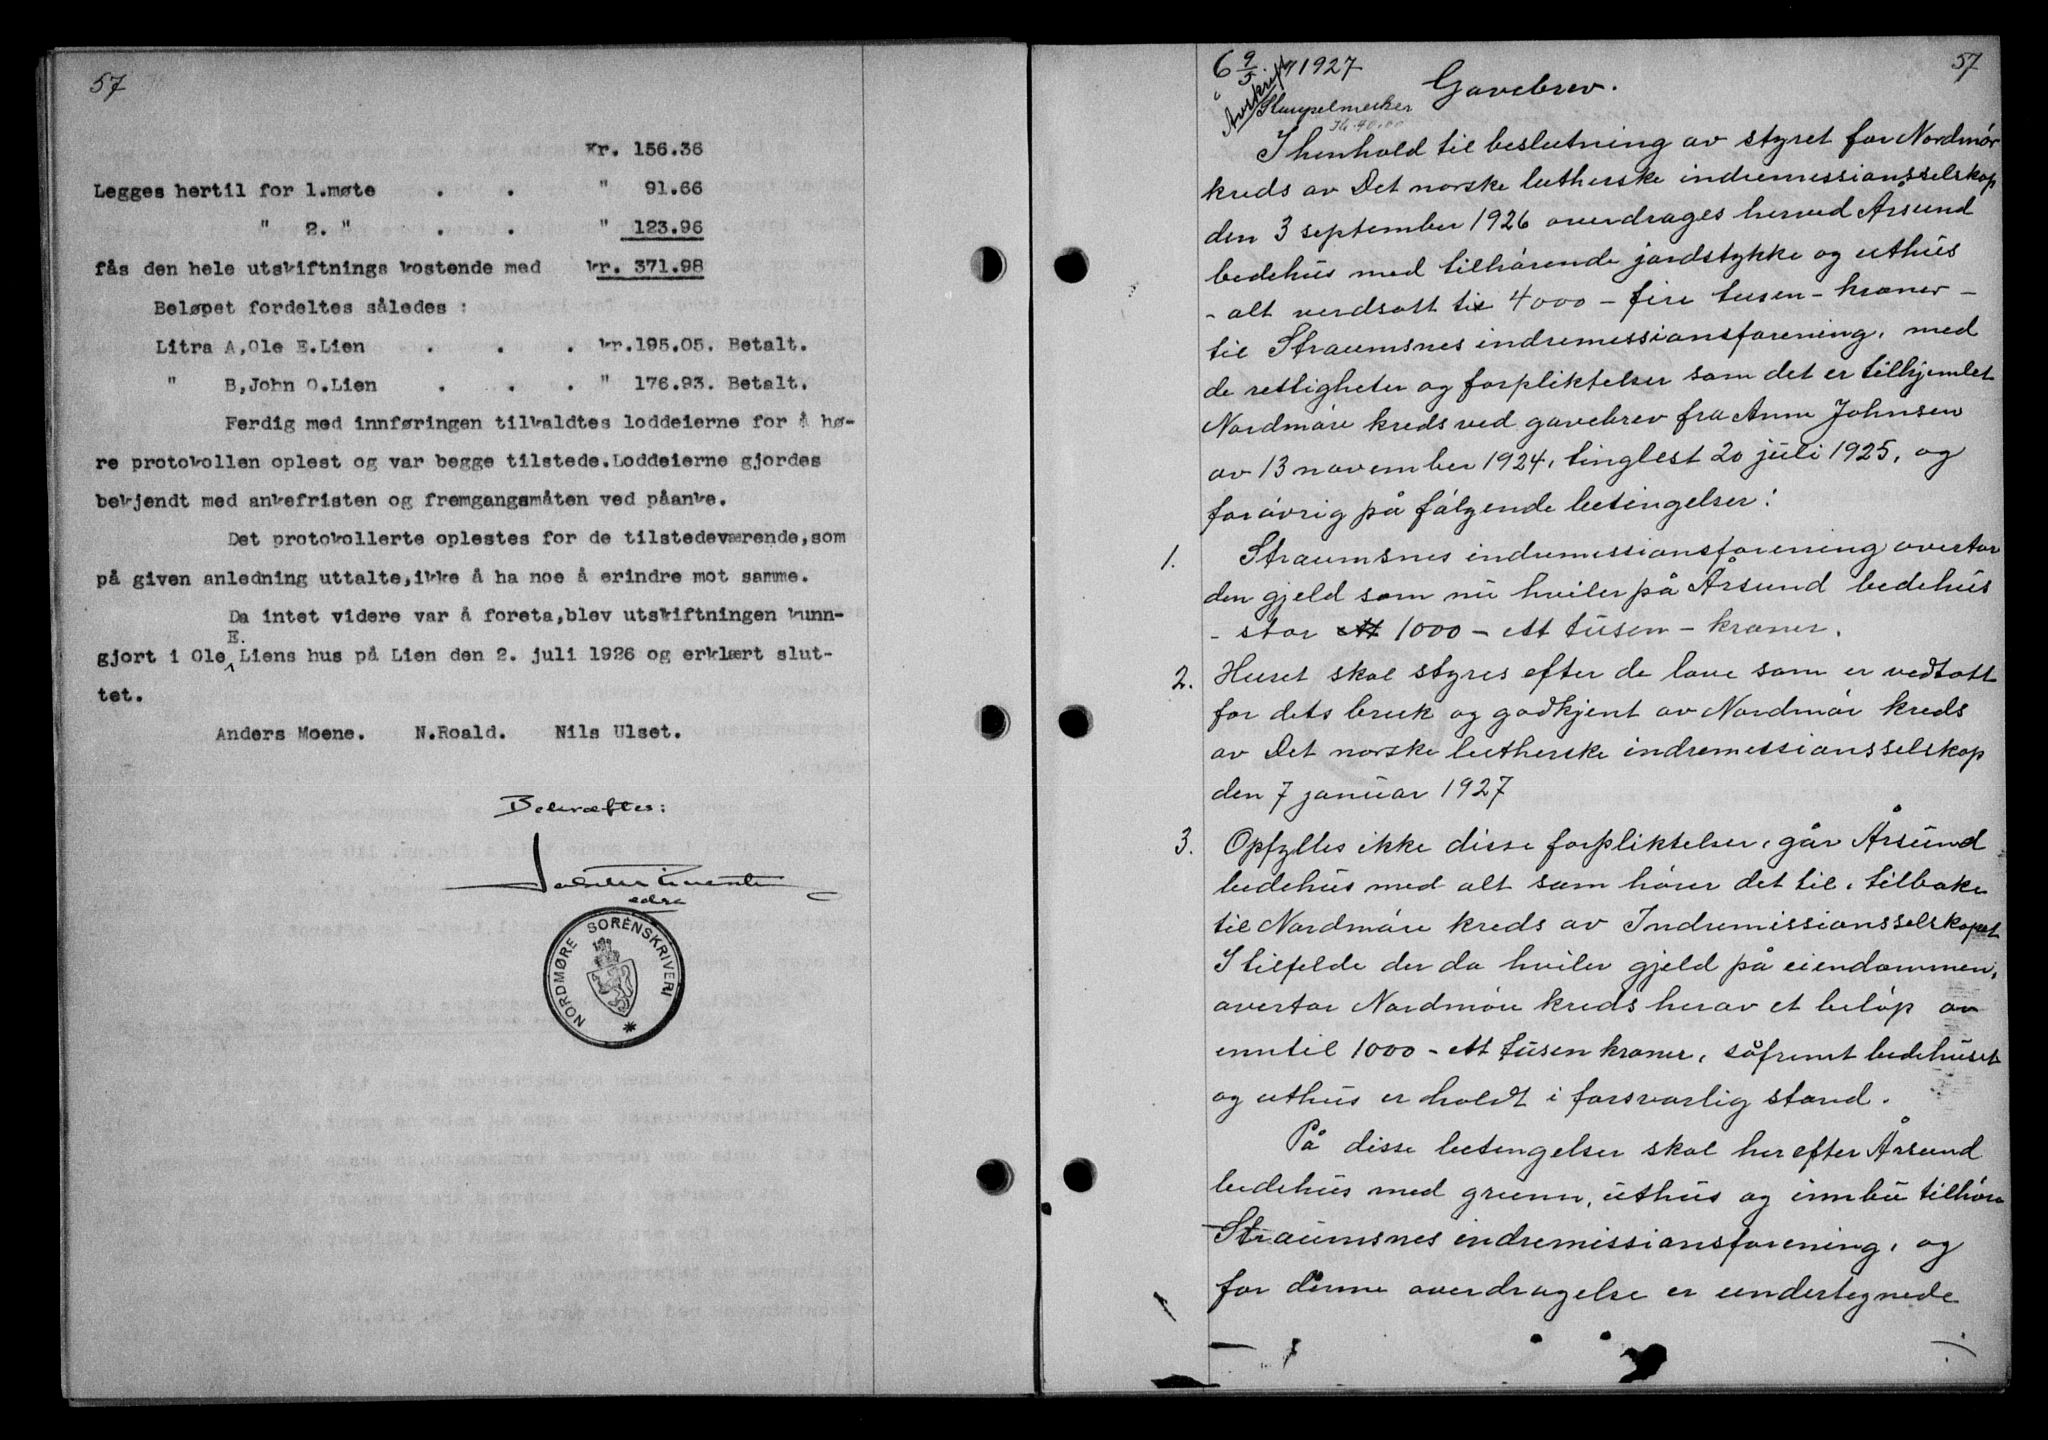 57
Kr. 156.36
Legges hertil for 1.møte . . " 91.66
" 2. " . . " 123.96
fås den hele utskiftnings kostende med kr. 371.98
Beløpet fordeltes således :
Litra A,Ole E.Lien . . . kr.195.05. Betalt.
" B,John O.Lien . . . " 176.93. Betalt.
Ferdig med innføringen tilkaldtes loddeierne for å hø-
re protokollen oplest og var begge tilstede.Loddeierne gjordes
bekjendt med ankefristen og fremgangsmåten ved påanke.
Det protokollerte oplestes for de tilstedeværende,som
på given anledning uttalte,ikke å ha noe å erindre mot samme.
Da intet videre var å foreta,blev utskiftningen kunn-
gjort i Ole E. Liens hus på Lien den 2. juli 1926 og erklært slut-
tet.
Anders Moene. N.Roald. Nils Ulset.
Bekræftes:
NORDMØRE SORENSKRIVERI
57
6 9/5 1927
Avskrift
Stempelmerker
Gavebrev.
I henhold til beslutning av styret for Nordmør
kreds av Det norske lutherske indremissionsselskap
den 3 september 1926 overdrages herved Årsund
bedehus med tilhørende jordstykke og uthus
- alt verdsatt til 4000 - fire tusen - kroner -
til Straumsnes indremissionsforening, med
de rettigheter og forpliktelser som det er tilhjemlet
Nordmøre kreds ved gavebrev fra Anne Johnsen
av 13 november 1924, tinglest 20 juli 1925, og
forøvrig på følgende betingelser:
1. Straumsnes indremissionsforening overtar
den gjeld som nu hviler på Årsund bedehus
- stor ett 1000 - ett tusen - kroner.
2. Huset skal styres efter de love som er vedtatt
for dets bruk og godkjent av Nordmør kreds
av Det norske lutherske indremissionsselskap
den 7 januar 1927
3. Opfylles ikke disse forpliktelser, går Årsund
bedehus med alt som hører det til, tilbake
til Nordmøre kreds av Indremissionsselskapet
I tilfelde der da hviler gjeld på eiendommen,
overtar Nordmøre kreds herav et beløp av
inntil 1000 - ett tusen kroner, såfremt bedehuset
og uthus er holdt i forsvarlig stand.
På disse betingelser skal her efter Årsund
bedehus med grunn, uthus og innbu tilhøre
Straumsnes indremissionsforening, og
for denne overdragelse er undertegnede